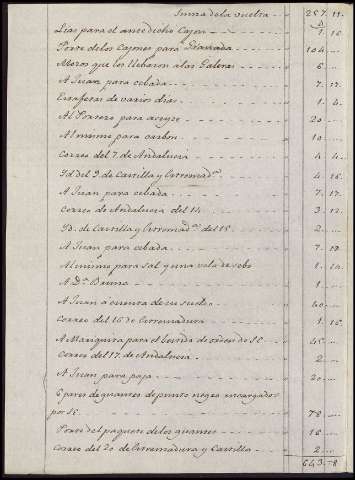 Suma de la vuelta 257.. 11..
Lias para el antedicho Cajon 1.. 16
Porte de los Cajones para Granada 104..
Mozos que los llebaron a las Galeras 6..
A Juan para cebada 7.. 17..
Estafetas de varios dias 1.. 4..
Al Portero para aceyte 20..
Al mismo para carbon 10..
Correo del 7. de Andalucia 4.. 4..
Yd. del 9. de Castilla y Estremad.ra 4.. 16
A Juan para cebada 7.. 17..
Correo de Andalucia del 14 3.. 12..
Yd. de Castilla y Estremad.ra del 15 2..
A Juan para cebada 7.. 17
Al mismo para sal y una vela de sebo 1..
A D.n 1..
A Juan a cuenta de su sueldo 40..
Correo del 16 de Estremadura 1.. 16
A Manquira para el de orden de SE 45..
Correo del 17. de Andalucia 2..
A Juan para paja 20..
6 pares de guantes de punto negro encargados
por SE 78..
Porte del paquete de los guantes 16
Correo del 20 de Estremadura y Castilla 2..
643..8